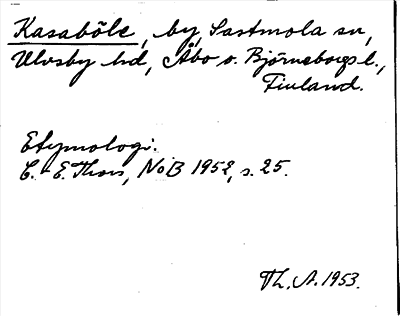 Kasaböle, by, Sastmola sn,
Ulvsby hd, Åbo o. Björneborgs l.,
Finland.
Etymologi:
C.-E. Thors, NoB 1952, s. 25.
Th. A. 1953.